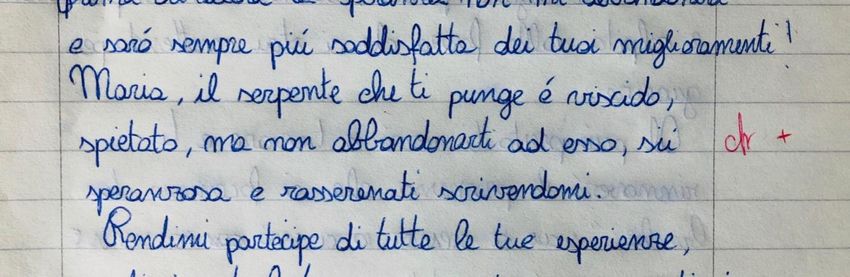 e saró sempre piú soddisfatta dei tuoi miglioramenti!
Maria, il serpente che ti punge é viscido,
spietato, ma non abbandonarti ad esso, sii
speranzosa e rasserenati scrivendomi.
Rendimi partecipe di tutte le tue esperienze,